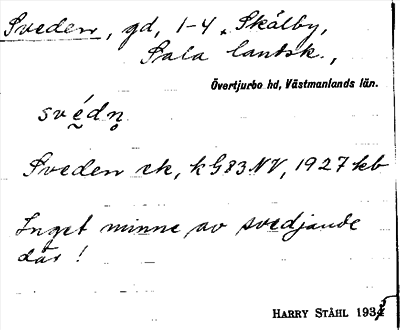 Sveden, gd, 1-4, Skålby,
Sala landsk.,
Övertjurbo hd, Västmanlands län.
svédn̥
Sveden ek, k G83NV, 1927 kb
Inget minne av svedjande
där!
HARRY STÅHL 1934